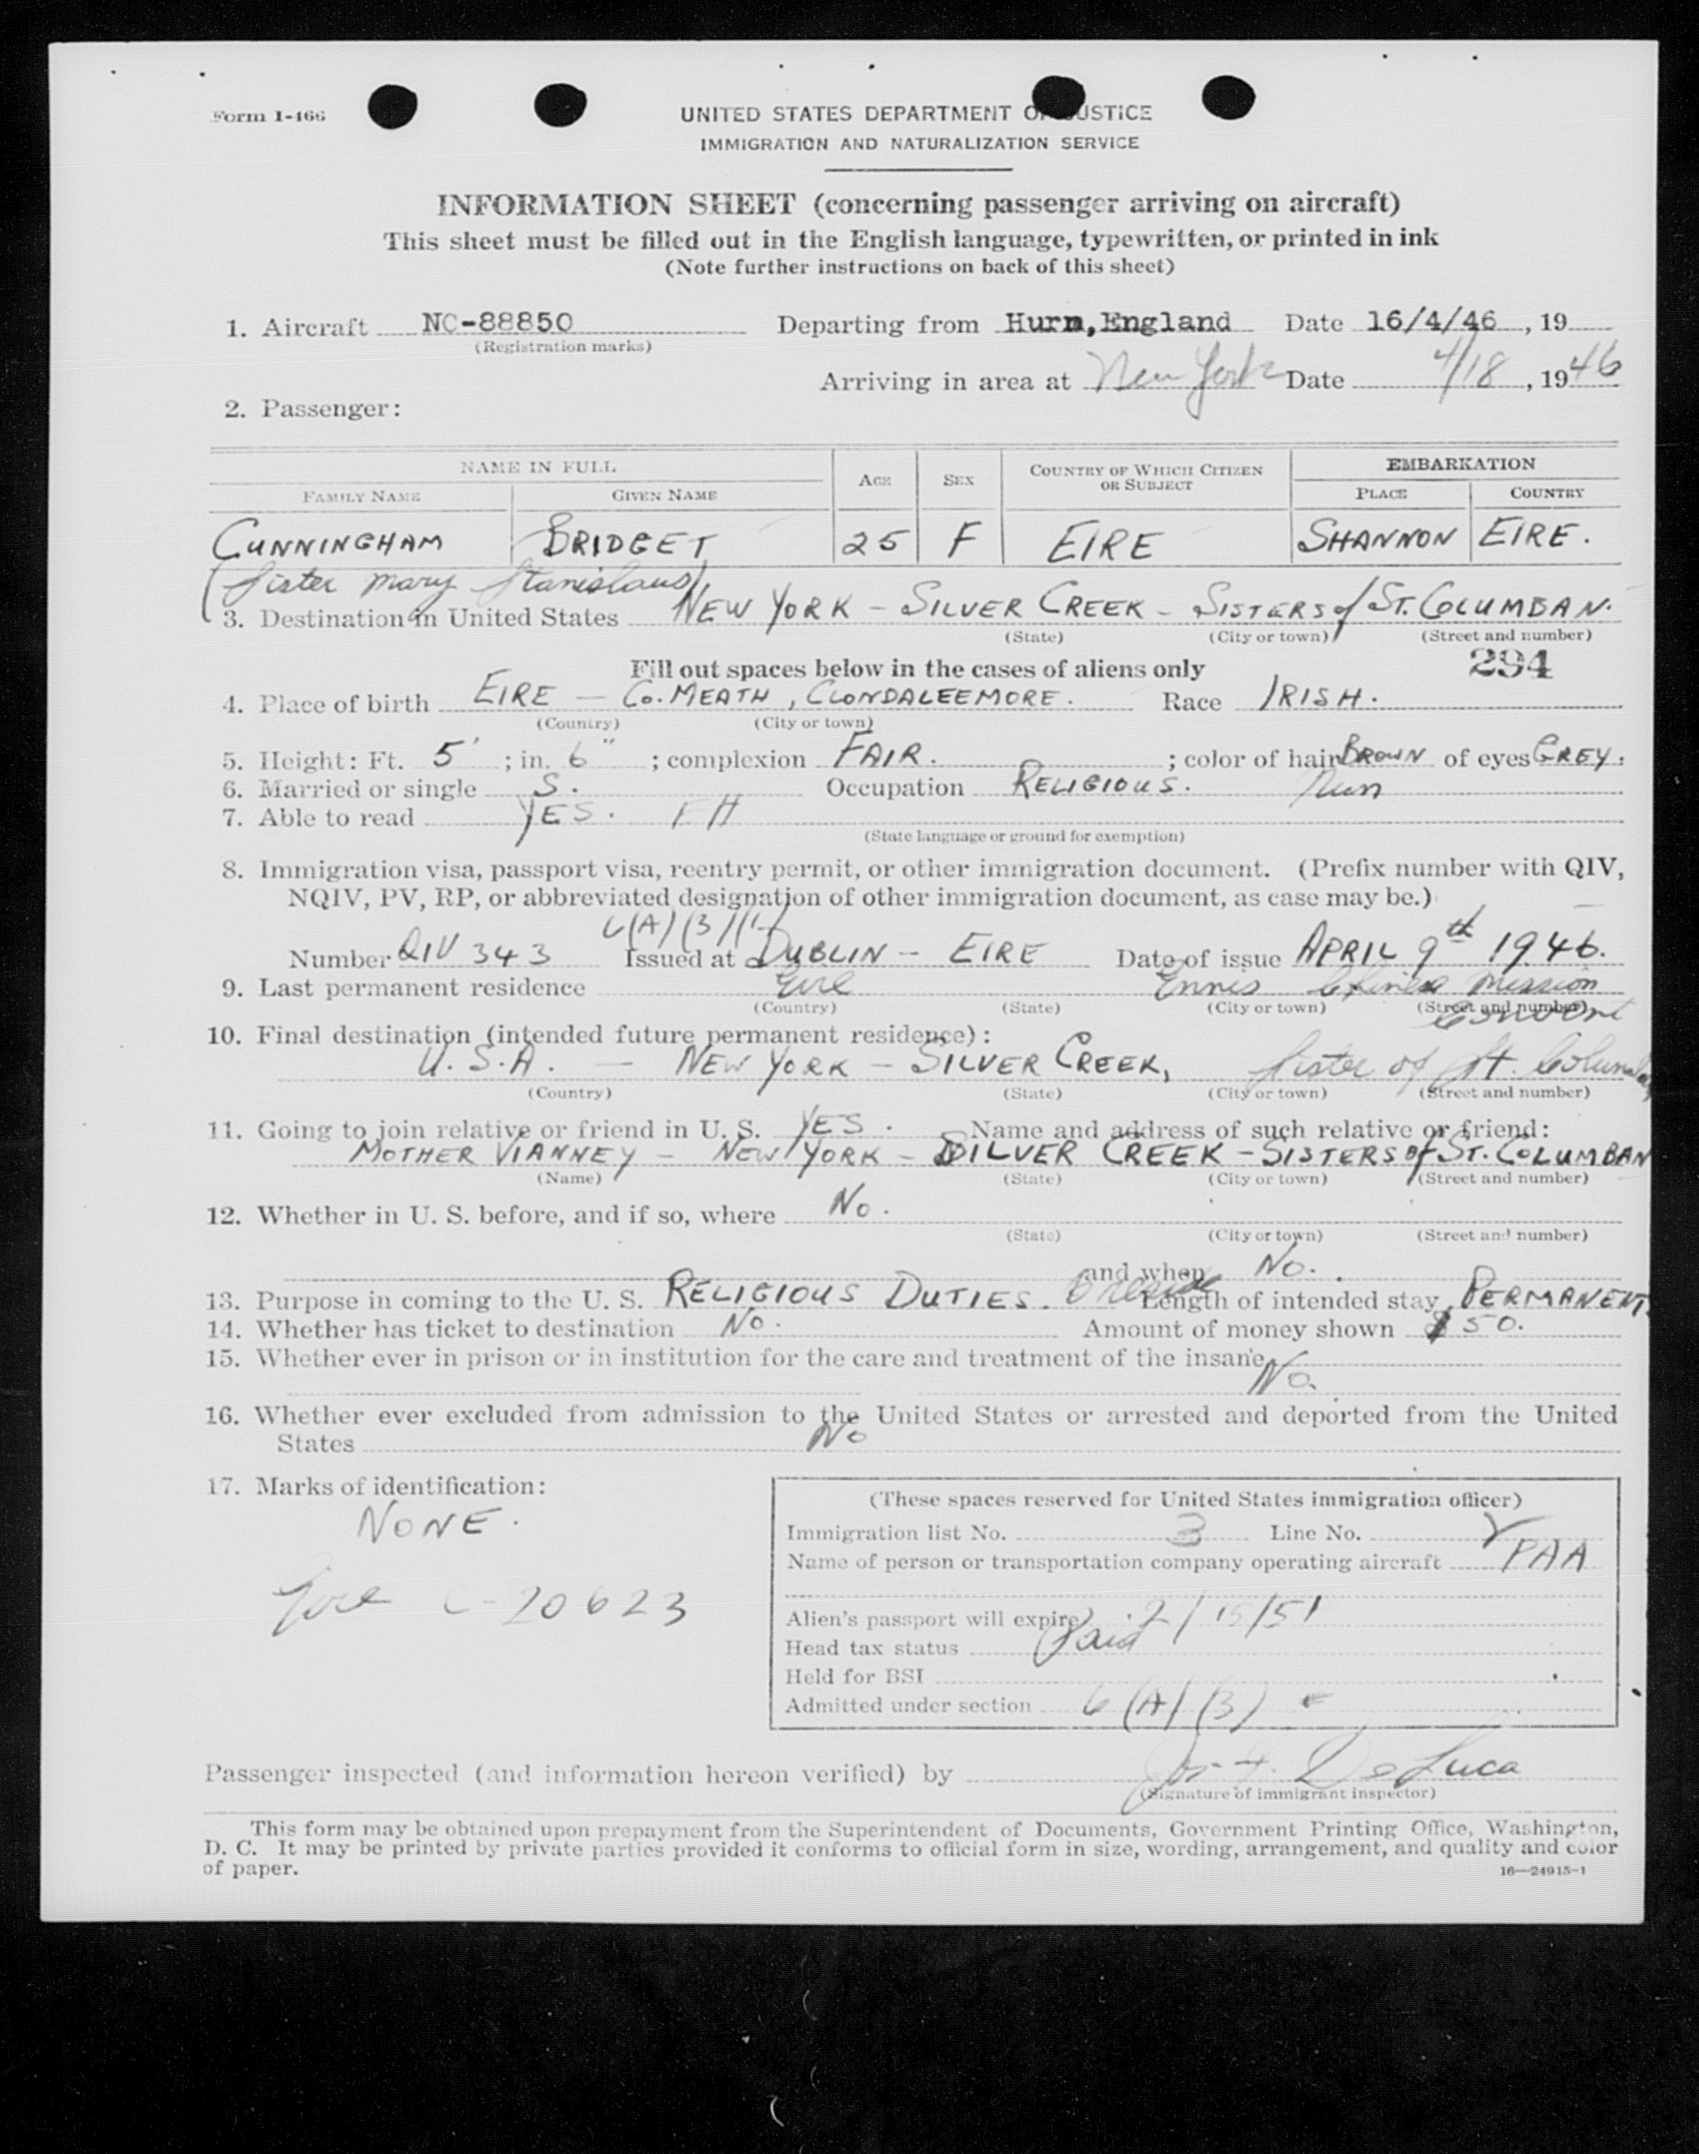 Form I-466
UNITED STATES DEPARTMENT OF JUSTICE
IMMIGRATION AND NATURALIZATION SERVICE
INFORMATION SHEET (concerning passenger arriving on aircraft)
This sheet must be filled out in the English language, typewritten, or printed in ink
(Note further instructions on back of this sheet)
1. Aircraft NC-88850 Departing from Hurn, England Date 16/4/46, 19
(Registration marks)
Arriving in area at New York Date 4/18, 1946
2. Passenger:
NAME IN FULL AGE SEX COUNTRY OF WHICH CITIZEN OR SUBJECT EMBARKATION
FAMILY NAME GIVEN NAME PLACE COUNTRY
CUNNINGHAM BRIDGET 25 F EIRE SHANNON EIRE.
(Sister Mary Stanislaus)
3. Destination in United States NEW YORK - SILVER CREEK - SISTERS of ST. COLUMBAN.
(State) (City or town) (Street and number)
Fill out spaces below in the cases of aliens only 294
4. Place of birth EIRE - CO. MEATH, CLONDALEEMORE. Race IRISH.
(Country) (City or town)
5. Height: Ft. 5' ; in. 6" ; complexion FAIR. ; color of hair BROWN of eyes GREY.
6. Married or single S. Occupation RELIGIOUS. Nun
7. Able to read YES. EH
(State language or ground for exemption)
8. Immigration visa, passport visa, reentry permit, or other immigration document. (Prefix number with QIV,
NQIV, PV, RP, or abbreviated designation of other immigration document, as case may be.)
6(A)(3)
Number QIV 343 Issued at DUBLIN - EIRE Date of issue APRIL 9th 1946.
9. Last permanent residence Eire Ennis Chinese Mission
(Country) (State) (City or town) (Street and number)
Convent
10. Final destination (intended future permanent residence):
U.S.A. - NEW YORK - SILVER CREEK, Sister of St. Columban
(Country) (State) (City or town) (Street and number)
11. Going to join relative or friend in U. S. YES. Name and address of such relative or friend:
MOTHER VIANNEY - NEW YORK - SILVER CREEK - SISTERS OF ST. COLUMBAN
(Name) (State) (City or town) (Street and number)
12. Whether in U. S. before, and if so, where No.
(State) (City or town) (Street and number)
and when No.
13. Purpose in coming to the U. S. RELIGIOUS DUTIES. & reside Length of intended stay PERMANENT.
14. Whether has ticket to destination No. Amount of money shown $50.
15. Whether ever in prison or in institution for the care and treatment of the insane
No.
16. Whether ever excluded from admission to the United States or arrested and deported from the United
States No
17. Marks of identification:
NONE.
Eire C-20623
(These spaces reserved for United States immigration officer)
Immigration list No. 3 Line No. 2
Name of person or transportation company operating aircraft PAA
Alien's passport will expire 2/15/51
Head tax status Paid
Held for BSI
Admitted under section 6(A)(3)
Passenger inspected (and information hereon verified) by Jos. F. DeLuca
(Signature of immigrant inspector)
This form may be obtained upon prepayment from the Superintendent of Documents, Government Printing Office, Washington,
D. C. It may be printed by private parties provided it conforms to official form in size, wording, arrangement, and quality and color
of paper.
16—24915-1